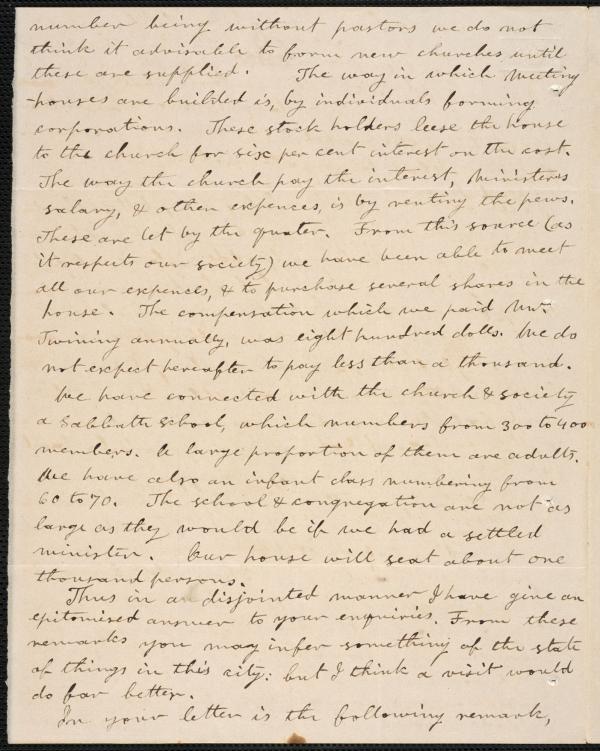 number being without pastors we do not
think it advisable to form new churches until
these are supplied. The way in which Meeting
-houses are builded is, by individuals forming
corporations. These stock holders leese the house
to the church for six per cent interest on the cost.
The way the church pay the interest, Ministers
salary, & other expences, is by renting the pews.
These are let by the quater. From this source (as
it respects our society) we have been able to meet
all our expences, & to purchase several shares in the
house. The compensation which we paid Mr.
Twining annually, was eight hundred dolls. We do
not expect hereafter to pay less than a thousand.
We have connected with the church & society
a Sabbath school, which numbers from 300 to 400
members. A large proportion of them are adults.
We have also an infant class numbering from
60 to 70. The school & congregation are not as
large as they would be if we had a settled
minister. Our house will seat about one
thousand persons.
Thus in an disjointed manner I have give an
epitomised answer to your enquiries. From these
remarks you may infer something of the state
of things in this city: but I think a visit would
do far better.
In your letter is the following remark,